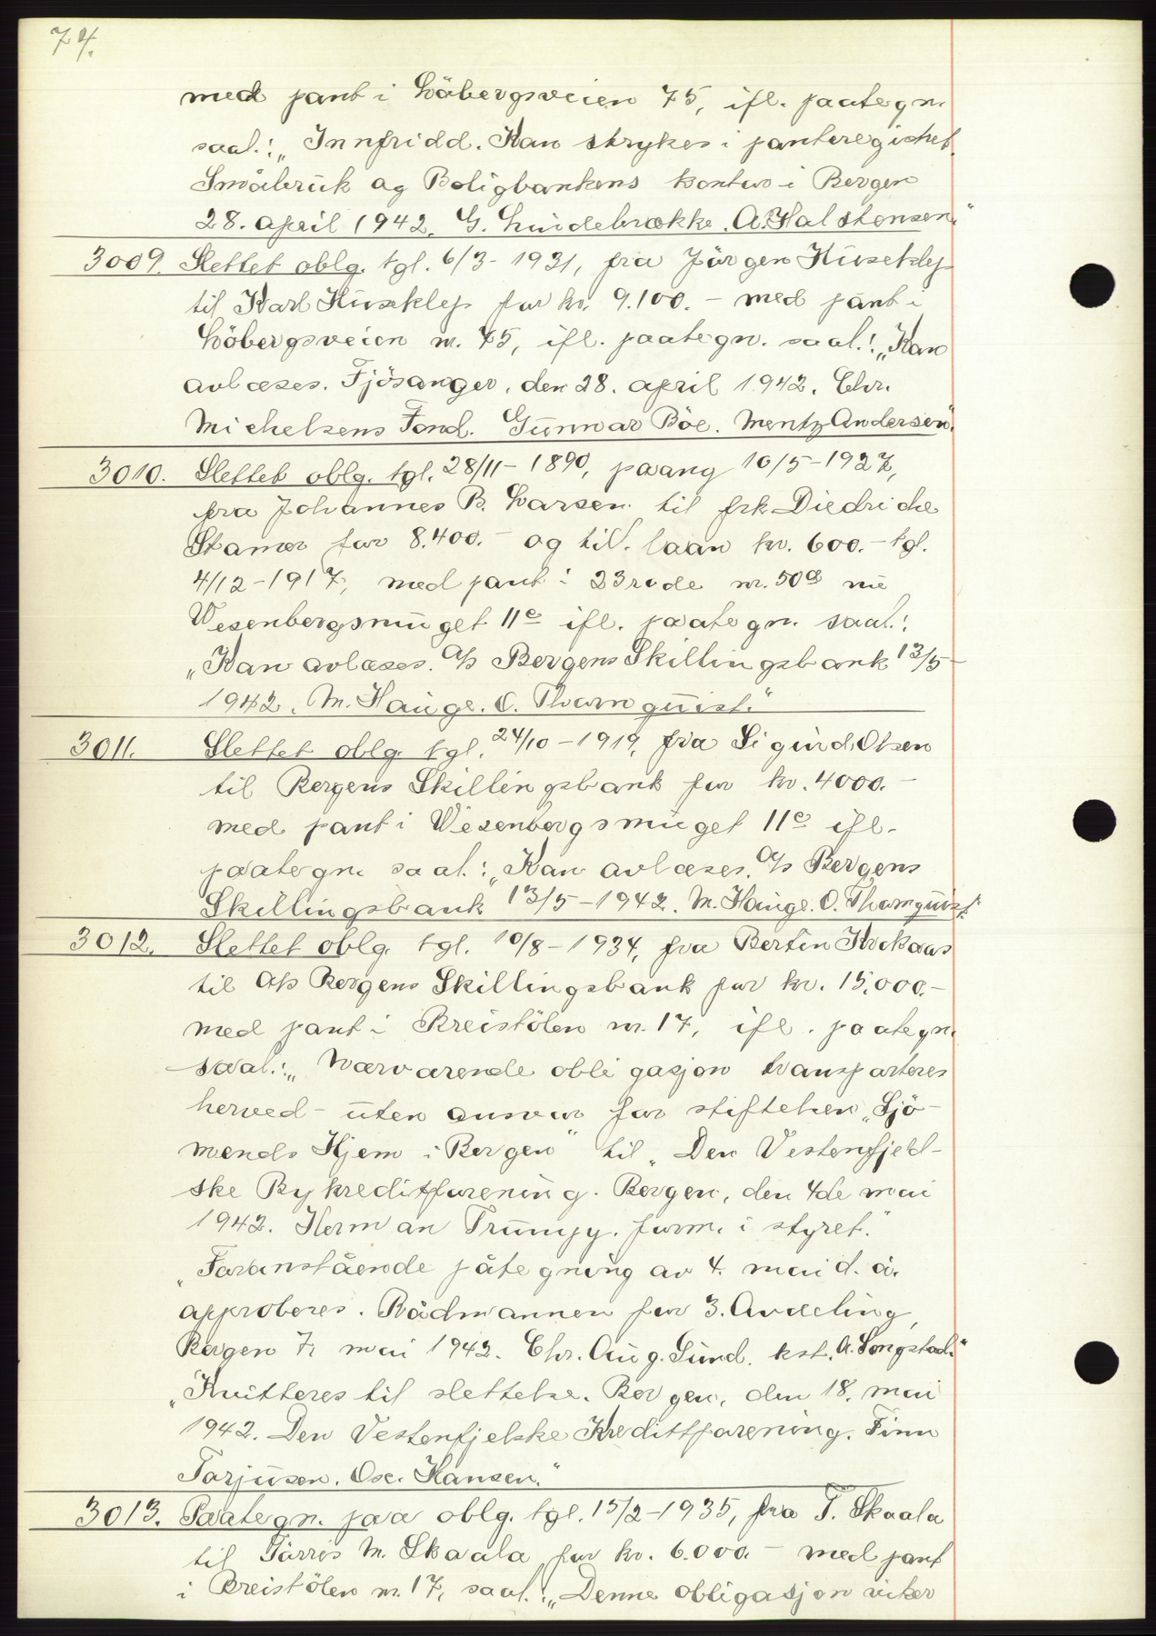 74.
med pant i Løbergsveien 75, ifl. paategn.
saal.: „Innfridd. Kan strykes i panteregistret.
Småbruk og Boligbankens kontor i Bergen
28. april 1942. G. Lindebrække. A. Halstensen."
3009. Slettet oblg. tgl. 6/3-1931, fra Jörgen Huseklep
til Karl Huseklep for kr. 9.100.- med pant i
Löbergsveien nr. 75, ifl. paategn. saal.: „Kan
avlæses. Fjösanger, den 28. april 1942. Chr.
Michelsens Fond. Gunnar Böe. Mentz Andersen".
3010. Slettet oblg. tgl. 28/11-1890, paang 10/5-1927,
fra Johannes B. Larsen til frk. Diedriche
Stamer for 8.400.- og till. laan kr. 600.- tgl.
4/12-1917, med pant i 23 rode nr. 50a nu
Wesenbergsmuget 11c ifl. paategn. saal.:
„Kan avlæses. A/S Bergens Skillingsbank 13/5-
1942. M. Hauge. O. Thornquist."
3011. Slettet oblg. tgl. 24/10-1919, fra Sigurd Olsen
til Bergens Skillingsbank for kr. 4000.-
med pant i Wesenbergsmuget 11c ifl.
paategn. saal.: „Kan avlæses. A/S Bergens
Skillingsbank 13/5-1942. M. Hauge. O. Thornquist."
3012. Slettet oblg. tgl. 10/8-1934, fra Bertin Krokaas
til A/S Bergens Skillingsbank for kr. 15.000.-
med pant i Breistölen nr. 17, ifl. paategn.
saal.: „Nærværende obligasjon transporteres
herved - uten ansvar for stiftelsen „Sjö-
mends Hjem i Bergen" til „Den Vestenfjeld-
ske Bykreditforening. Bergen, den 4de mai
1942. Herman Trumpy. form. i styret."
„Foranstående påtegning av 4. mai d. å.
approberes. Rådmannen for 3. Avdeling,
Bergen 7. mai 1942. Chr. Aug. Sund. kst. A. Songstad."
„Kvitteres til slettelse. Bergen, den 18. mai
1942. Den Vestenfjelske Kredittforening. Finn
Torjusen. Osc. Hansen."
3013. Paategn. paa oblg. tgl. 15/2-1935, fra T. Skaala
til M. Skaala for kr. 6.000.- med pant
i Breistölen nr. 17, saal.: „Denne obligasjon viker